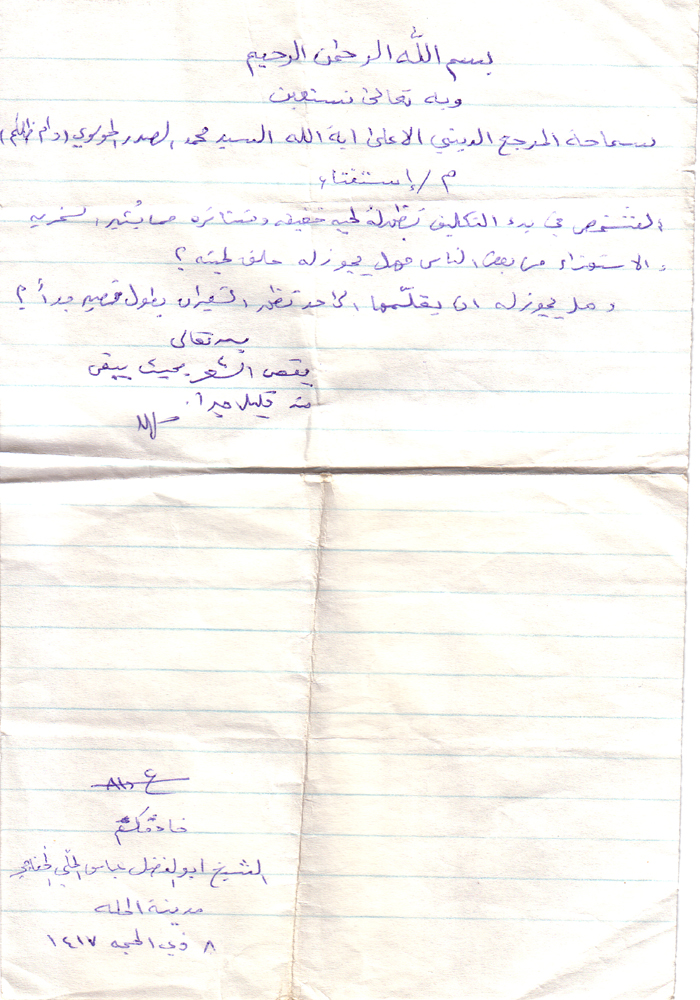 بسم الله الرحمن الرحيم
وبه تعالى نستعين
سماحة المرجع الديني الاعلى اية الله السيد محمد الصدر الموسوي (دام ظلكم)
م / إستفتاء
شخص في بدء التكليف تظهر له لحيه خفيفه ومتناثره مما يُثير السخريه
والاستهزاء من بعض الناس فهل يجوز له حلق لحيته ؟
وهل يجوز له ان يقلّمها الى حد تظهر الشعيرات بطول قصير جداً ؟
بسمه تعالى
يقص الشعر بحيث يبقى
منه قليل جداً.
خادمكم
الشيخ ابو الفضل عباس الحلي الخفاجي
مدينة الحله
٨ ذي الحجه ١٤١٧